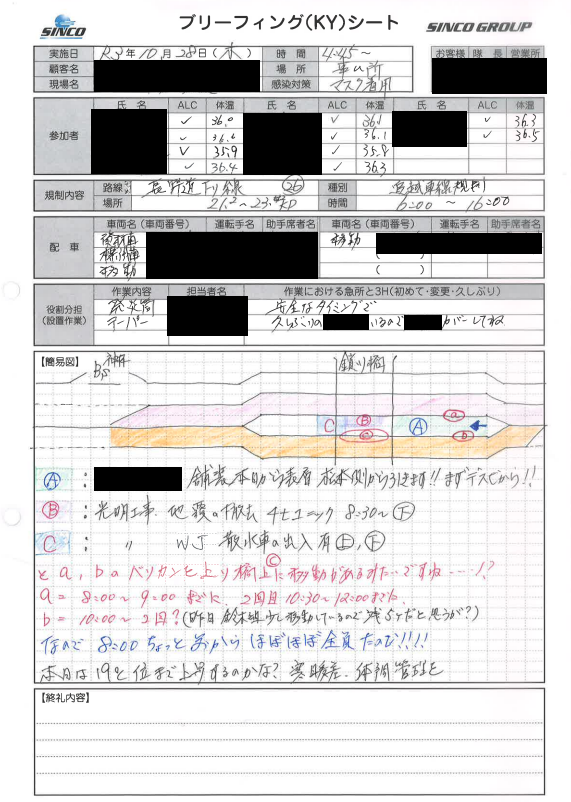 SINCO
ブリーフィング(KY)シート
SINCO GROUP
実施日 R3年10月28日(木) 時間 4:45~
お客様 隊長 営業所
顧客名 場所 事ム所
現場名 感染対策 マスク着用
参加者 氏名 ALC 体温 氏名 ALC 体温 氏名 ALC 体温
✓ 36.0 ✓ 36.1 ✓ 36.3
✓ ✓ 36.1 ✓ 36.5
✓ 35.9 ✓ 35.8
✓ 36.4 ✓ 36.3
規制内容 路線 長野道下り線 26 種別 追越車線規制
場所 21.2~23. KP 時間 6:00~16:00
配車 車両名(車両番号) 運転手名 助手席者名 車両名(車両番号) 運転手名 助手席者名
標識車 移動
標識車 ( )
移動 ( )
役割分担(設置作業) 作業内容 担当者名 作業における急所と3H(初めて・変更・久しぶり)
発炎筒 安全なタイミングで
テーパー 久しぶりの いるので カバーしてね
【簡易図】
神林
BS
鎖川橋
C B A a
c b
A : 舗装本日から表層 松本側から引きます!!まずデスヒから!!
B : 光明工事 地覆の撤去 4tユニック 8:30~下
C : 〃 WJ 散水車の出入有 上、下
と a, b a バリカンを上り橋上 c に移動があるみた…ですね……!?
a = 8:00~9:00までに 2回目10:30~12:00までに
b = 10:00~2回?(昨日 少し移動しているので残5ヶだと思うが?)
なので 8:00ちょっとまえから ほぼほぼ全員たのむ!!!!
本日は19℃位まで上昇するのかな? 寒暖差、体調管理を
【終礼内容】